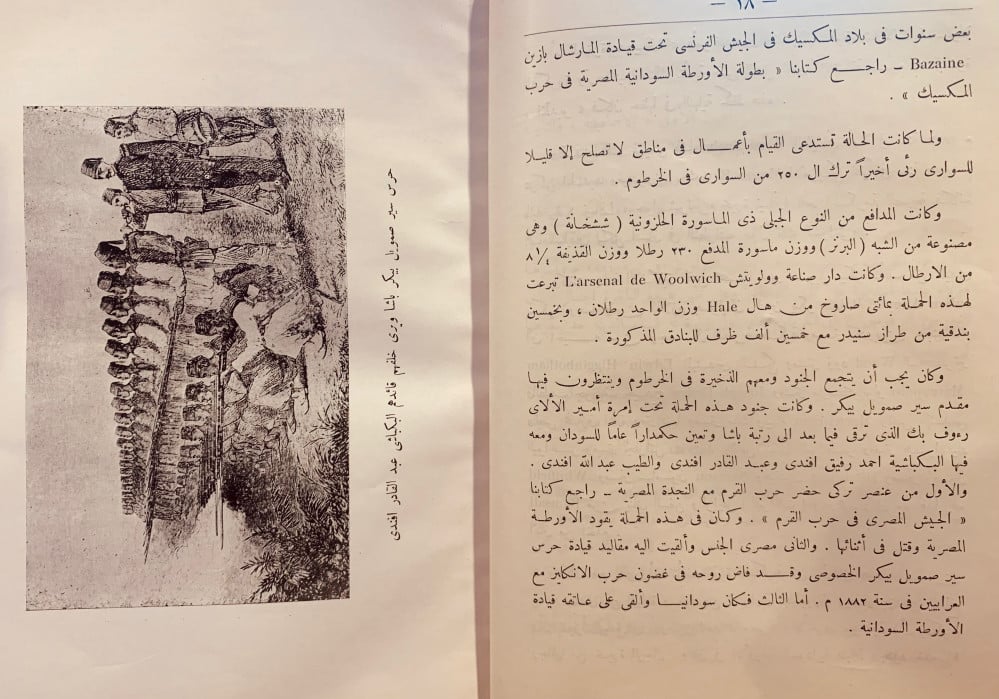 — ١٨ —
بعض سنوات فى بلاد المكسيك فى الجيش الفرنسى تحت قيادة المارشال بازين
Bazaine ــ راجـــع كتابنا « بطولة الأورطة السودانية المصرية فى حرب
المكسيك » .
ولما كانت الحالة تستدعى القيام بأعمـــال فى مناطق لا تصلح إلا قليلا
للسوارى رئى أخيراً ترك ال ٢٥٠ من السوارى فى الخرطوم .
وكانت المدافع من النوع الجبلى ذى الماسورة الحلزونية ( ششخانة ) وهى
مصنوعة من الشبه ( البرنز ) ووزن ماسورة المدفع ٢٣٠ رطلا ووزن القذيفة ٨¼
من الارطال . وكانت دار صناعة وولويتش L'arsenal de Woolwich تبرعت
لهذه الحملة بمائتى صاروخ من هـال Hale وزن الواحد رطلان ، وبخمسين
بندقية من طراز سنيدر مع خمسين ألف ظرف للبنادق المذكورة .
وكان يجب أن يتجمع الجنود ومعهم الذخيرة فى الخرطوم وينتظرون فيها
مقدم سير صمويل بيكر . وكانت جنود هذه الحملة تحت إمرة أمير الألاى
رءوف بك الذى ترقى فيما بعد الى رتبة باشا وتعين حكمداراً عاماً للسودان ومعه
فيها البكباشية احمد رفيق افندى وعبد القادر افندى والطيب عبد الله افندى .
والأول من عنصر تركى حضر حرب القرم مع النجدة المصرية ــ راجع كتابنا
« الجيش المصرى فى حرب القرم » . وكان فى هذه الحملة يقود الأورطة
المصرية وقتل فى أثنائها . والثانى مصرى الجنس وألقيت اليه مقاليد قيادة حرس
سير صمويل بيكر الخصوصى وقـــد فاض روحه فى غضون حرب الانكليز مع
العرابيين فى سنة ١٨٨٢ م . أما الثالث فكان سودانيـا وألقى على عاتقه قيادة
الأورطة السودانية .
حرس سير صمويل بيكر باشا ويرى خلفهم قائدهم البكباشى عبد القادر افندى